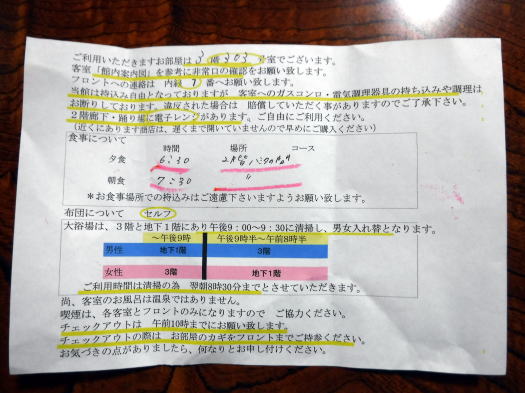 ご利用いただきますお部屋は 3 階 303 号室でございます。
客室「館内案内図」を参考に非常口の確認をお願い致します。
フロントへの連絡は 内線 7 番へお願い致します。
当館は持込み自由となっておりますが 客室へのガスコンロ・電気調理器具の持ち込みや調理は
お断りしております。違反された場合は 賠償していただく事がありますのでご了承下さい。
2階廊下・踊り場に電子レンジがあります。ご自由にご利用ください。
(近くにあります商店は、遅くまで開いていませんので早めにご購入ください)
食事について
時間 場所 コース
夕食 6:30 2階
朝食 7:30 〃
*お食事場所での持込みはご遠慮下さいますようお願い致します。
布団について セルフ
大浴場は、3階と地下1階にあり午後9:00~9:30に清掃し、男女入れ替となります。
~午後9時 午後9時半~午前8時半
男性 地下1階 3階
女性 3階 地下1階
ご利用時間は清掃の為 翌朝8時30分までとさせていただきます。
尚、客室のお風呂は温泉ではありません。
喫煙は、各客室とフロントのみになりますので ご協力ください。
チェックアウトは 午前10時までにお願い致します。
チェックアウトの際は お部屋のカギをフロントまでご持参ください。
お気づきの点がありましたら、何なりとお申し付けください。